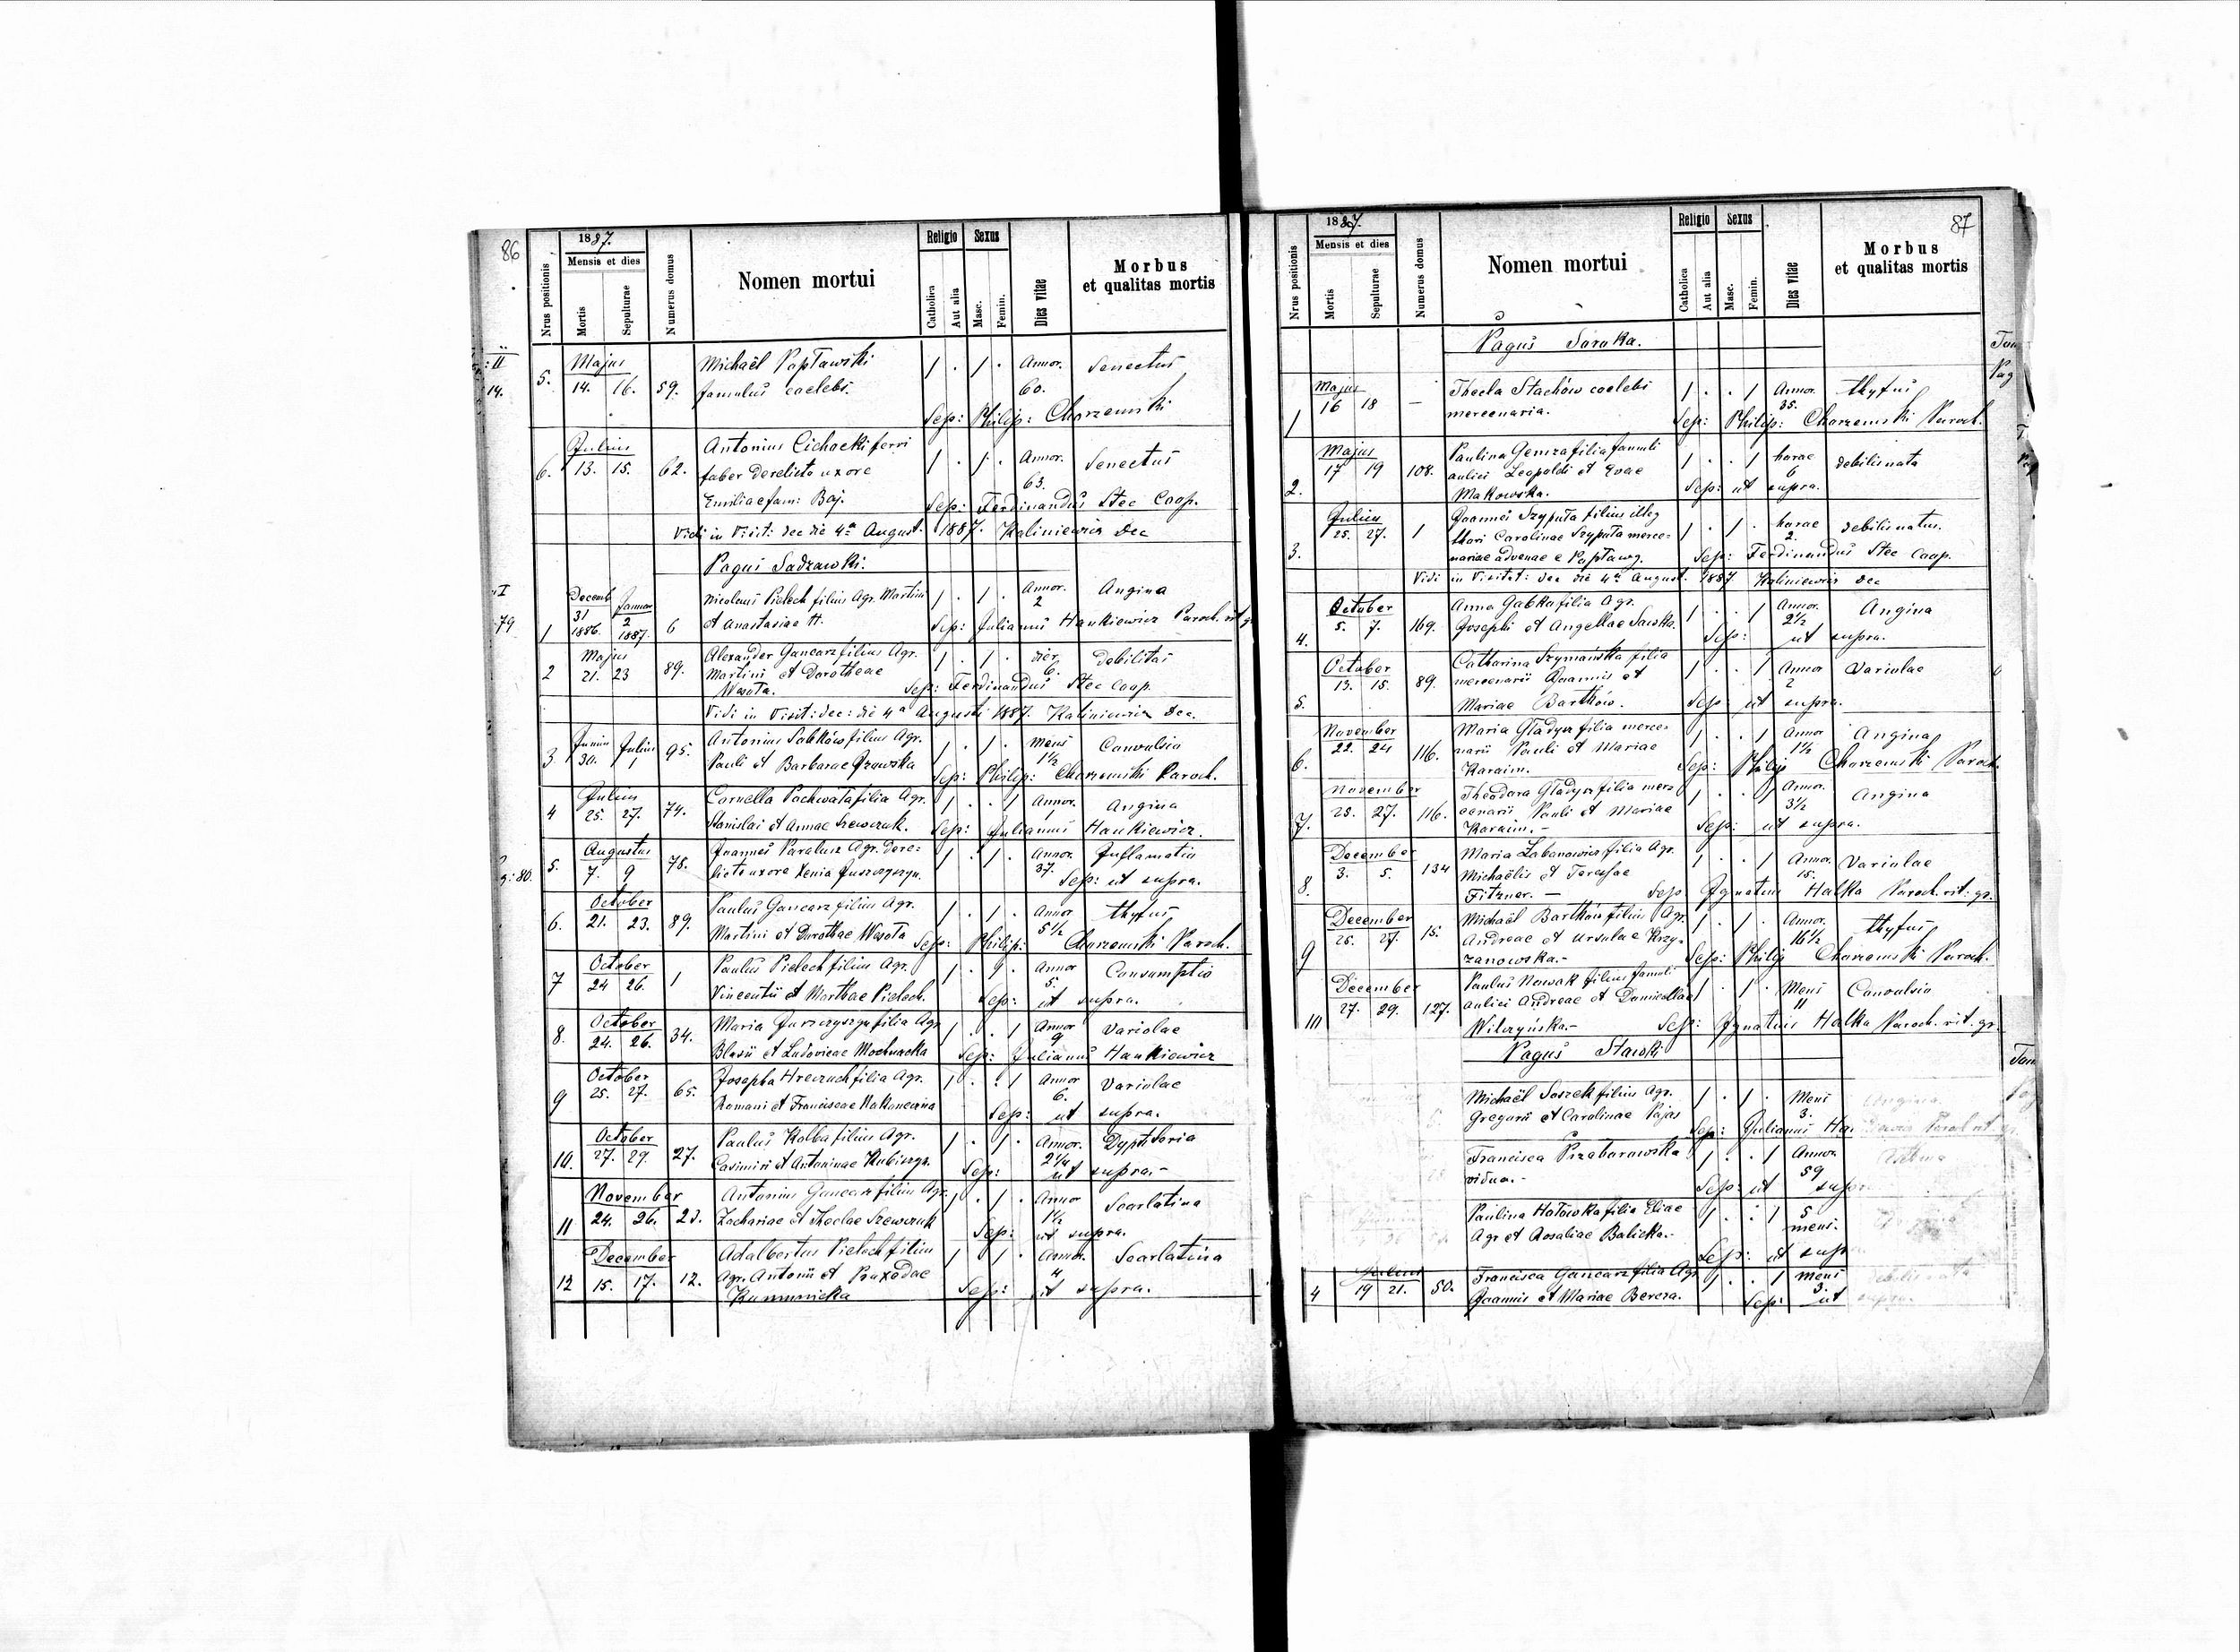 86
1887.
Mensis et dies
Nrus positionis
Mortis
Sepulturae
Numerus domus
Nomen mortui
Religio
Catholica
Aut alia
Sexus
Masc.
Femin.
Dies vitae
Morbus
et qualitas mortis
Majus
5. 14. 16. 59. Michaël Popławski 1 . 1 . Annor. Senectus
famulus caelebs. 60.
Sep: Philip: Charzewski
Julius
6. 13. 15. 62. Antonius Cichocki ferri 1 . 1 . Annor. Senectus
faber derelicta uxore 63.
Emiliae fam: Baj. Sep: Ferdinandus Stec Coop.
Vidi in Visit: dec die 4ta August. 1887. Kaliniewicz Dec
Pagus Sadzawki.
Decemb. Januar
1 31 1886. 2 1887. 6 Nicolaus Pielech filius Agr. Martini 1 . 1 . Annor. 2 Angina
et Anastasiae H. Sep: Julianus Hankiewicz Paroch. rit. g
Majus
2 21. 23 89. Alexander Gancarz filius Agr. 1 . 1 . dier. 6. debilitas
Martini et Dorotheae
Wesoła. Sep: Ferdinandus Stec coop.
Vidi in Visit: dec: die 4a Augusti 1887. Kaliniewicz Dec.
Junius Julius
3 30. 1 95. Antonius Sabków filius Agr. 1 . 1 . Mens 1½ Convulsio
Pauli et Barbarae
Sep: Philip: Charzewski Paroch.
Julius
4 25. 27. 74. Cornella Pachwata filia Agr. 1 . . 1 Annor. 1 Angina
Stanislai et Annae Szewczuk. Sep: Julianus Hankiewicz.
Augustus
5. 7. 9 78. Joannes Paralusz Agr. dere: 1 . 1 . Annor. 37. Inflamatio
licta uxore Xenia Juszczyszyn. Sep: ut supra.
October
6. 21. 23. 89. Paulus Gancarz filius Agr. 1 . 1 . Annor 5½ thyfus
Martini et Dorothae Wesoła Sep: Philip: Charzewski Paroch.
October
7 24 26. 1 Paulus Pielech filius Agr. 1 . 1 . Annor 5. Consumptio
Vincentii et Marthae Pielech. Sep: ut supra.
October
8. 24. 26. 34. Maria Juszczyszyn filia Agr 1 . . 1 Annor 9 Variolae
Blasii et Ludovicae Mochnacka Sep: Julianus Hankiewicz
October
9 25. 27. 65. Josepha Hreczuch filia Agr. 1 . . 1 Annor 6. Variolae
Romani et Franciscae Sep: ut supra.
October
10. 27. 29. 27. Paulus Kolba filius Agr. 1 . 1 . Annor. 2¼ Dyphtheria
Casimiri et Antoninae Sep: ut supra.-
November
11 24. 26. 23. Antonius Gancarz filius Agr. 1 . 1 . Annor 1½ Scarlatina
Zachariae et Theclae Szewczuk Sep: ut supra.
December
12 15. 17. 12. Adalbertus Pielech filius 1 . 1 . Annor. 4 Scarlatina
Agr. Antonii et Praxedae Sep: ut supra.
Kamınicka
87
1887.
Mensis et dies
Nrus positionis
Mortis
Sepulturae
Numerus domus
Nomen mortui
Religio
Catholica
Aut alia
Sexus
Masc.
Femin.
Dies vitae
Morbus
et qualitas mortis
Pagus Soroka.
Majus
1 16 18 — Thecla Stachów coelebs 1 . . 1 Annor. 35. thyfus
mercenaria. Sep: Philip: Charzewski Paroch.
Majus
2. 17 19 108. Paulina Gemza filia famuli 1 . . 1 horae 6 debilis nata
aulici Leopoldi et Evae
Makowska. Sep: ut supra.
Julius
3. 25. 27. 1 Joannes Szyputa filius illeg 1 . 1 . horae 2. debilis natus.
thori Carolinae Szyputa merce=
nariae advenae e Popławy. Sep: Ferdinandus Stec Coop.
Vidi in Visitat: dec die 4ta August. 1887 Kaliniewicz Dec
October
4. 5. 7. 169. Anna Gabka filia Agr. 1 . . 1 Annor. 2½ Angina
Josephi et Angellae Sep: ut supra.
October
5. 13. 15. 89. Catharina Szymańska filia 1 . . 1 Annor 2 Variolae
mercenarii Joannis et
Mariae Bartków. Sep: ut supra.
November
6. 22. 24 116. Maria Gładysz filia merce= 1 . . 1 Annor 1½ Angina
narii Pauli et Mariae
Karaim. Sep: Philip Charzewski Paroch.
November
7. 25. 27. 116. Theodora Gładysz filia mer= 1 . . 1 Annor. 3½ Angina
cenarii Pauli et Mariae
Karaim.- Sep: ut supra.
December
8. 3. 5. 134 Maria Łabanowicz filia Agr. 1 . . 1 Annor. 15. Variolae
Michaëlis et Teressae
Fitzner. — Sep Ignatius Halka Paroch. rit. gr.
December
9 25. 27. 15. Michaël Bartków filius Agr. 1 . 1 . Annor. 16½ thyfus
Andreae et Ursulae Krzy=
żanowska.- Sep: Philip Charzewski Paroch.
December
10 27. 29. 127. Paulus Nowak filius famuli 1 . 1 . Mens 11 Convulsio
aulici Andreae et Domicellae
Wilczyńska.- Sep: Ignatius Halka Paroch. rit. gr.
Pagus Stawki
Michaël Soszek filius Agr. 1 . 1 . Mens 3. Angina
Gregorii et Carolinae Pajas Sep: Julianus
Francisca Przaborowska 1 . . 1 Annor. 59
vidua.- Sep: ut supra
Paulina Hołowka filia Eliae 1 . . 1 5 mens.
Agr et Rosaliae Balicka.- Sep: ut supr
Julius
4 19 21. 50. Francisca Gancarz filia Agr 1 . . 1 mens 3. debilis nata
Joannis et Mariae Bereza. Sep: ut supra.